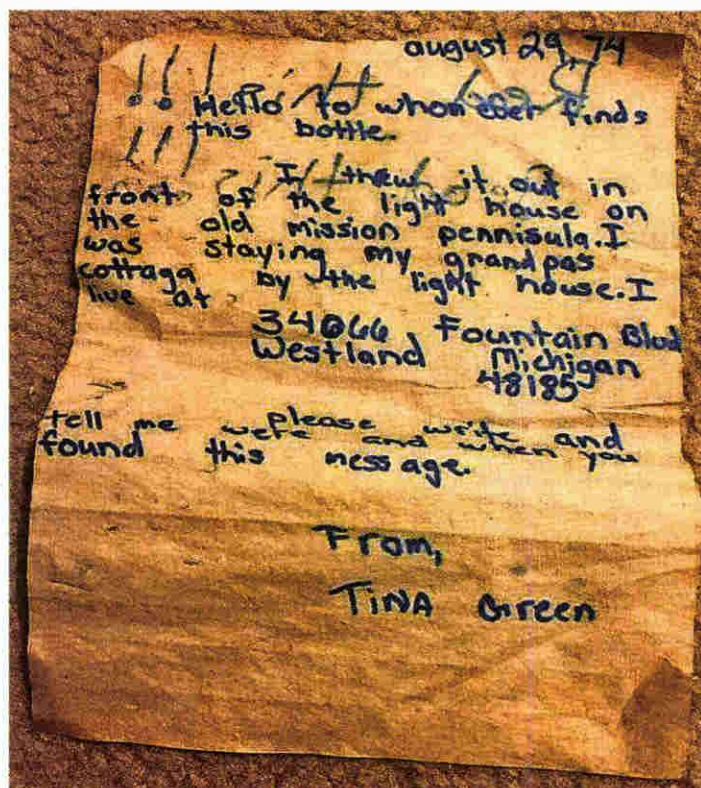 august 29, 74
Hello to whom ever finds
this bottle.
I threw it out in
front of the light house on
the old mission pennisula. I
was staying my grandpas
cottaga by the light house. I
live at
34066 Fountain Blvd
Westland Michigan
48185
please write and
tell me were and when you
found this message.
From,
TINA Green